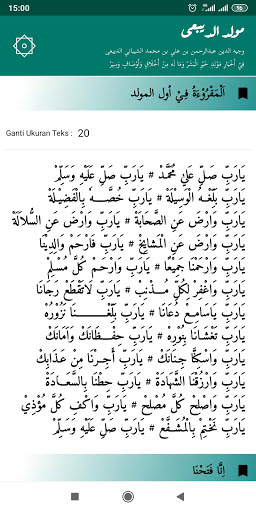 15:00
مولد الديبعي
وجيه الدين عبدالرحمن بن علي بن محمد الشيباني الديبعي
فِيْ أَخْبَارِ مَوْلِدِ خَيْرِ الْبَشَرِ وَمَا لَهُ مِنْ أَخْلَاقٍ وَأَوْصَافٍ وَسِيَرْ
اَلْمَقْرُوْءَةُ فِيْ أَوَّلِ الْمَوْلِدْ
Ganti Ukuran Teks : 20
يَارَبِّ صَلِّ عَلَى مُحَمَّدْ # يَارَبِّ صَلِّ عَلَيْهِ وَسَلِّمْ
يَارَبِّ بَلِّغْهُ الْوَسِيْلَةْ # يَارَبِّ خُصَّهُ بِالْفَضِيْلَةْ
يَارَبِّ وَارْضَ عَنِ الصَّحَابَةْ # يَارَبِّ وَارْضَ عَنِ السُّلَالَةْ
يَارَبِّ وَارْضَ عَنِ الْمَشَايِخْ # يَارَبِّ فَارْحَمْ وَالِدِيْنَا
يَارَبِّ وَارْحَمْنَا جَمِيْعًا # يَارَبِّ وَارْحَمْ كُلَّ مُسْلِمْ
يَارَبِّ وَاغْفِرْ لِكُلِّ مُذْنِبْ # يَارَبِّ لَاتَقْطَعْ رَجَانَا
يَارَبِّ يَاسَامِعْ دُعَانَا # يَارَبِّ بَلِّغْنَا نَزُوْرُهْ
يَارَبِّ تَغْشَانَا بِنُوْرِهْ # يَارَبِّ حِفْظَانَكْ وَاَمَانَكْ
يَارَبِّ وَاسْكِنَّا جِنَانَكْ # يَارَبِّ أَجِرْنَا مِنْ عَذَابِكْ
يَارَبِّ وَارْزُقْنَا الشَّهَادَةْ # يَارَبِّ حِطْنَا بِالسَّعَادَةْ
يَارَبِّ وَاصْلِحْ كُلَّ مُصْلِحْ # يَارَبِّ وَاكْفِ كُلَّ مُؤْذِيْ
يَارَبِّ نَخْتِمْ بِالْمُشَفَّعْ # يَارَبِّ صَلِّ عَلَيْهِ وَسَلِّمْ
إِنَّا فَتَحْنَا